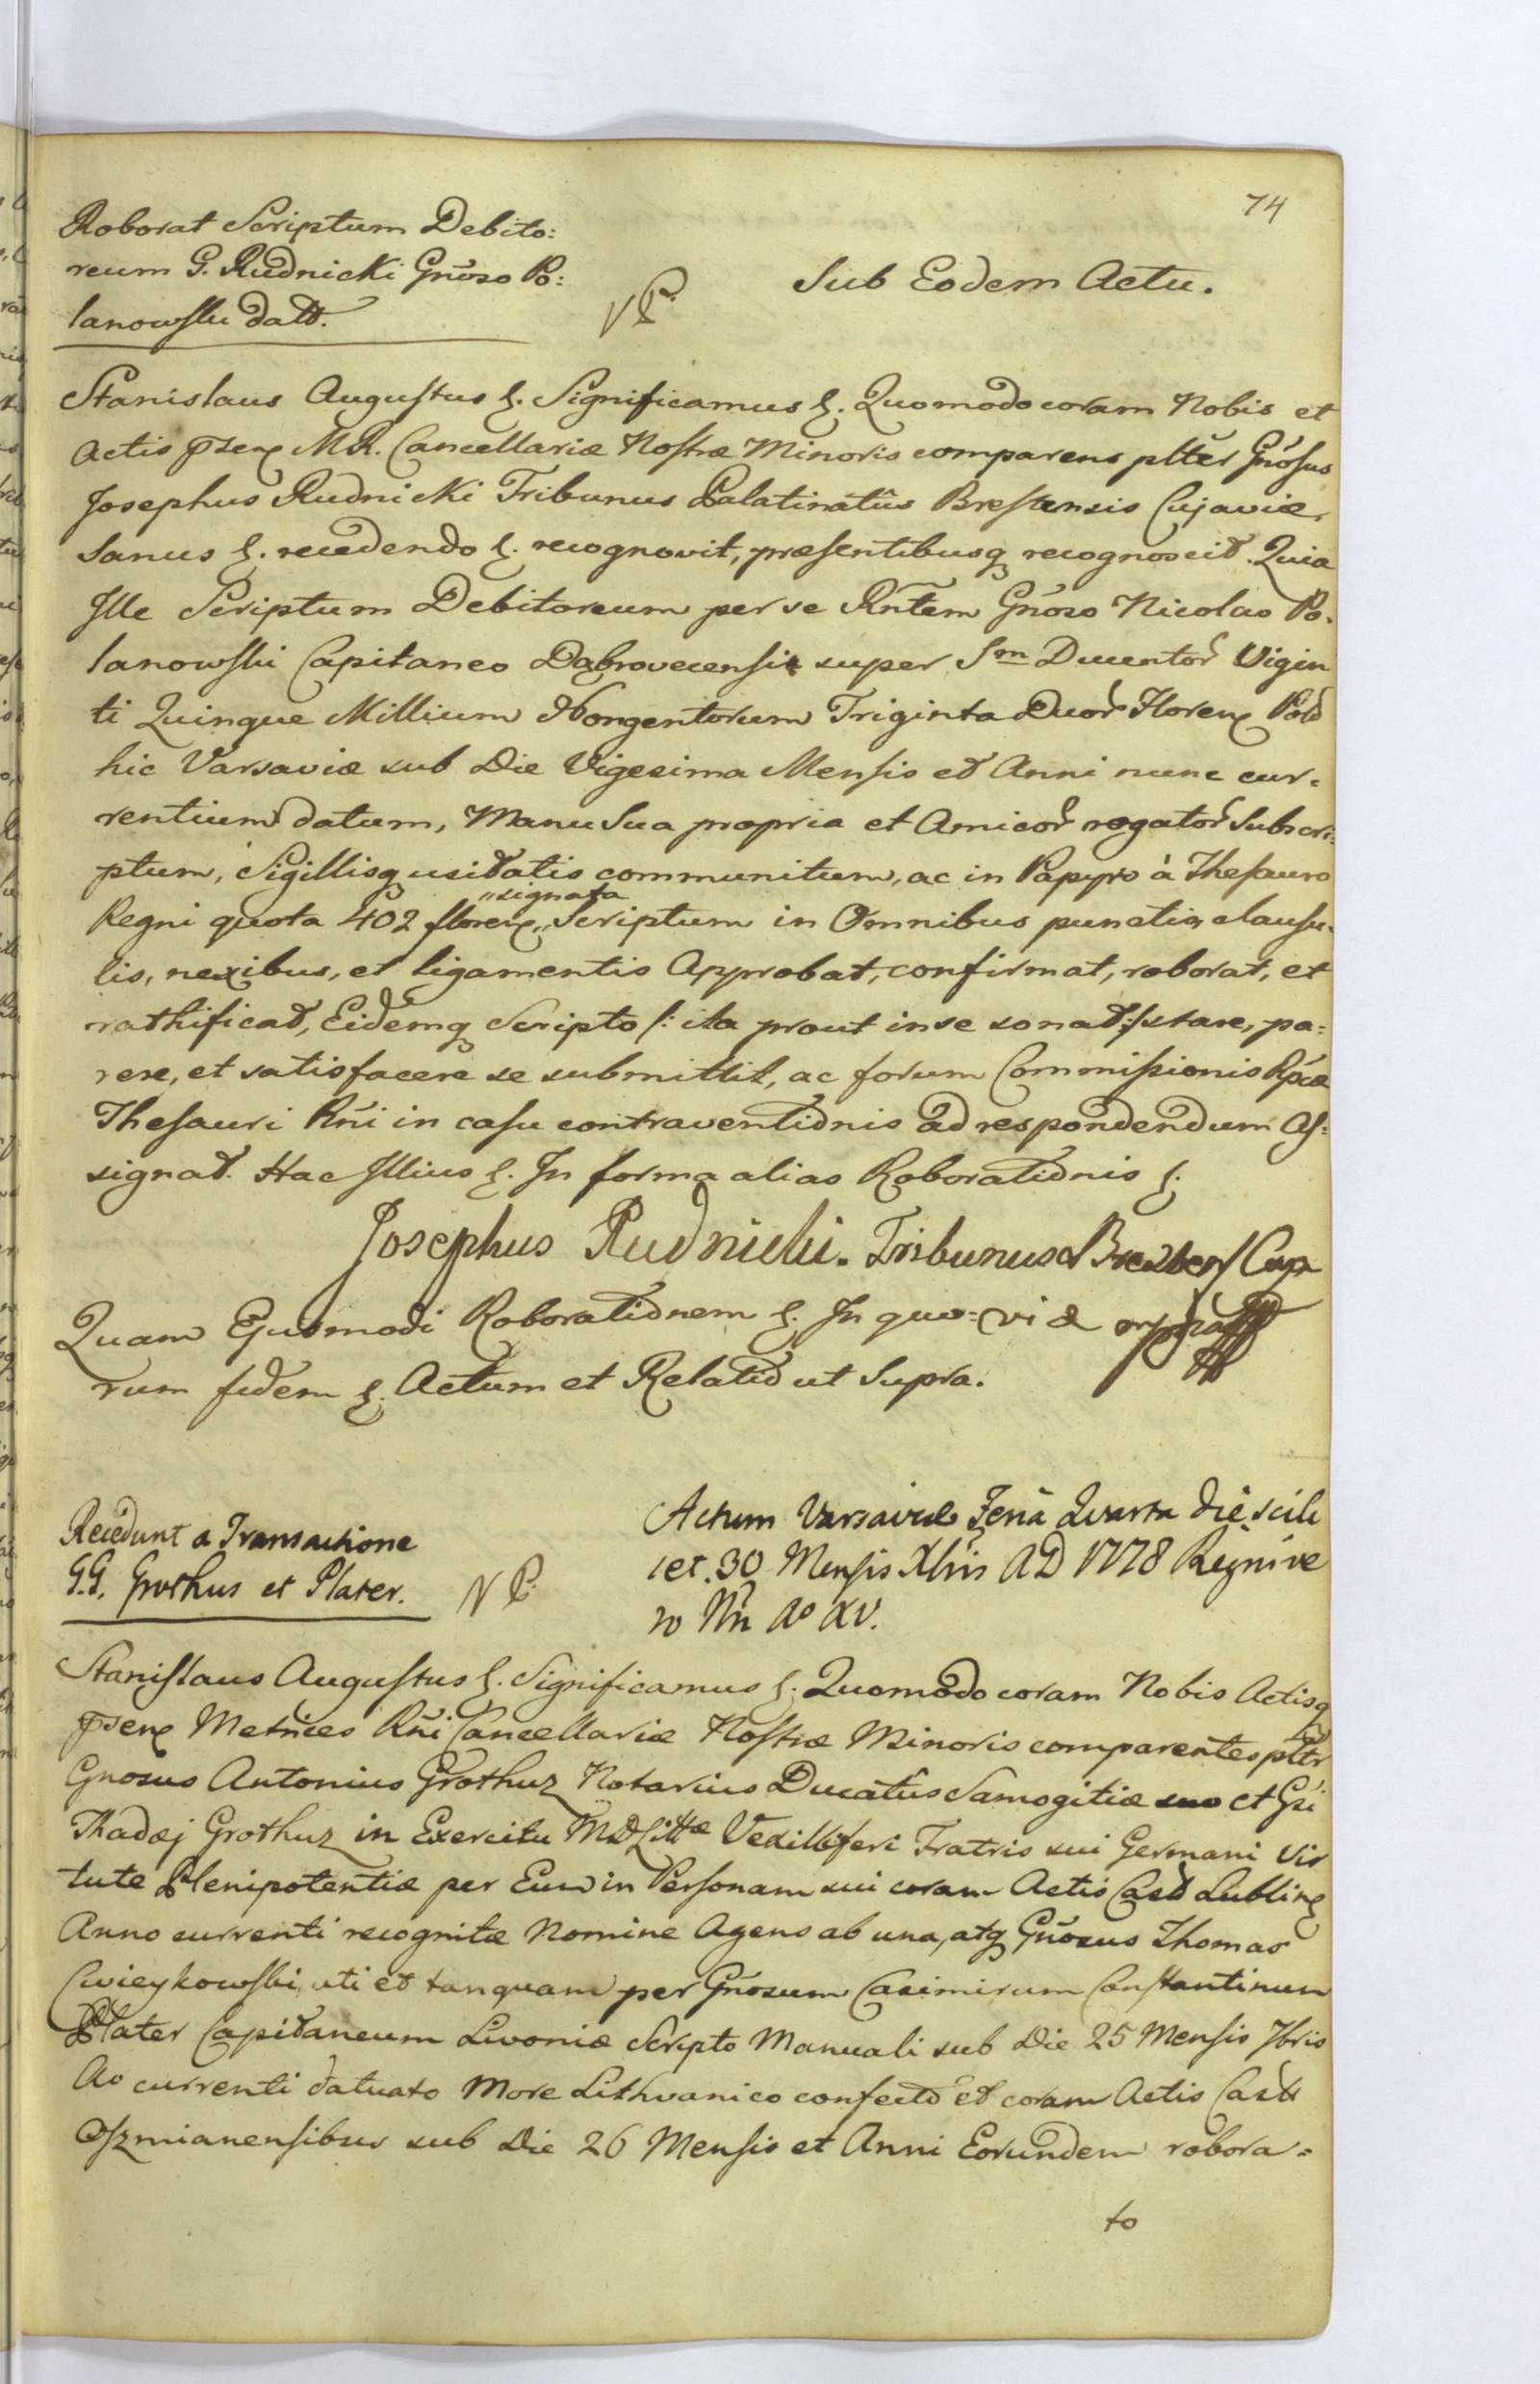 74
Roborat Scriptum Debito:
reum G. Rudnicki Gnoso Po:
lanowski datt.
Sub Eodem Actu.
Stanislaus Augustus &. Significamus &. Quomodo coram Nobis et
Actis psen MR. Cancellariæ Nostræ Minoris comparens plter Gnosus
Josephus Rudnicki Tribunus Palatinatûs Brestensis Cujaviæ,
Sanus &. recedendo &. recognovit, præsentibusq recognoscit. Quia
Ille Scriptum Debitoreum per se Rntem Gnoso Nicolao Po:
lanowski Capitaneo Dąbrovecensi super Sm Ducentor Vigin
ti Quinque Millium Nongentorum Triginta Duor Floren Pold
hic Varsaviæ sub Die Vigesima Mensis et Anni nunc cur:
rentium datum, Manu Sua propria et Amicor rogator Subscri:
ptum, Sigillisq usitatis communitum, ac in Papyro à Thesauro
Regni quota 402 floren „signata„ Scriptum in Omnibus punctis, clausu:
lis, nexibus, et ligamentis Approbat, confirmat, roborat, et
rathificat, Eidemq Scripto /: ita prout in se sonat :/ stare, pa:
rere, et satisfacere se submittit, ac forum Commissionis Rpcæ
Thesauri Rni in casu contraventionis ad respondendum As:
signat. Hac Illius &. In forma alias Roborationis &.
Josephus Rudnicki. Tribunus Brzesten Cuja
Quam Ejusmodi Roborationem &. In quo:
rum fidem &. Actum et Relatio ut Supra.
Recedunt a Transactione
G.G. Grothus et Plater.
Actum Varsaviæ Feria Quarta die scili
cet. 30 Mensis Xbris AD 1778 Regni ve
ro Nri Ao XV.
Stanislaus Augustus &. Significamus &. Quomodo coram Nobis Actisq
psen Metrices Rni Cancellariæ Nostræ Minoris comparentes plter
Gnosus Antonius Grothuz Notarius Ducatûs Samogitiæ suo et Gsi
Thadæj Grothuz in Exercitu MDLittæ Vexilliferi Fratris sui Germani Vir
tute Plenipotentiæ per Eum in Personam sui coram Actis Castr Lublin
Anno currenti recognitæ Nomine Agens ab una, atq Gnosus Thomas
Cwieykowski, uti et tanquam per Gnosum Casimirum Constantinum
Plater Capitaneum Livoniæ Scripto Manuali sub Die 25 Mensis 7bris
Ao currenti datuato More Lithvanico confecto et coram Actis Castr
Oszmianensibus sub Die 26 Mensis et Anni Eorundem robora=
to